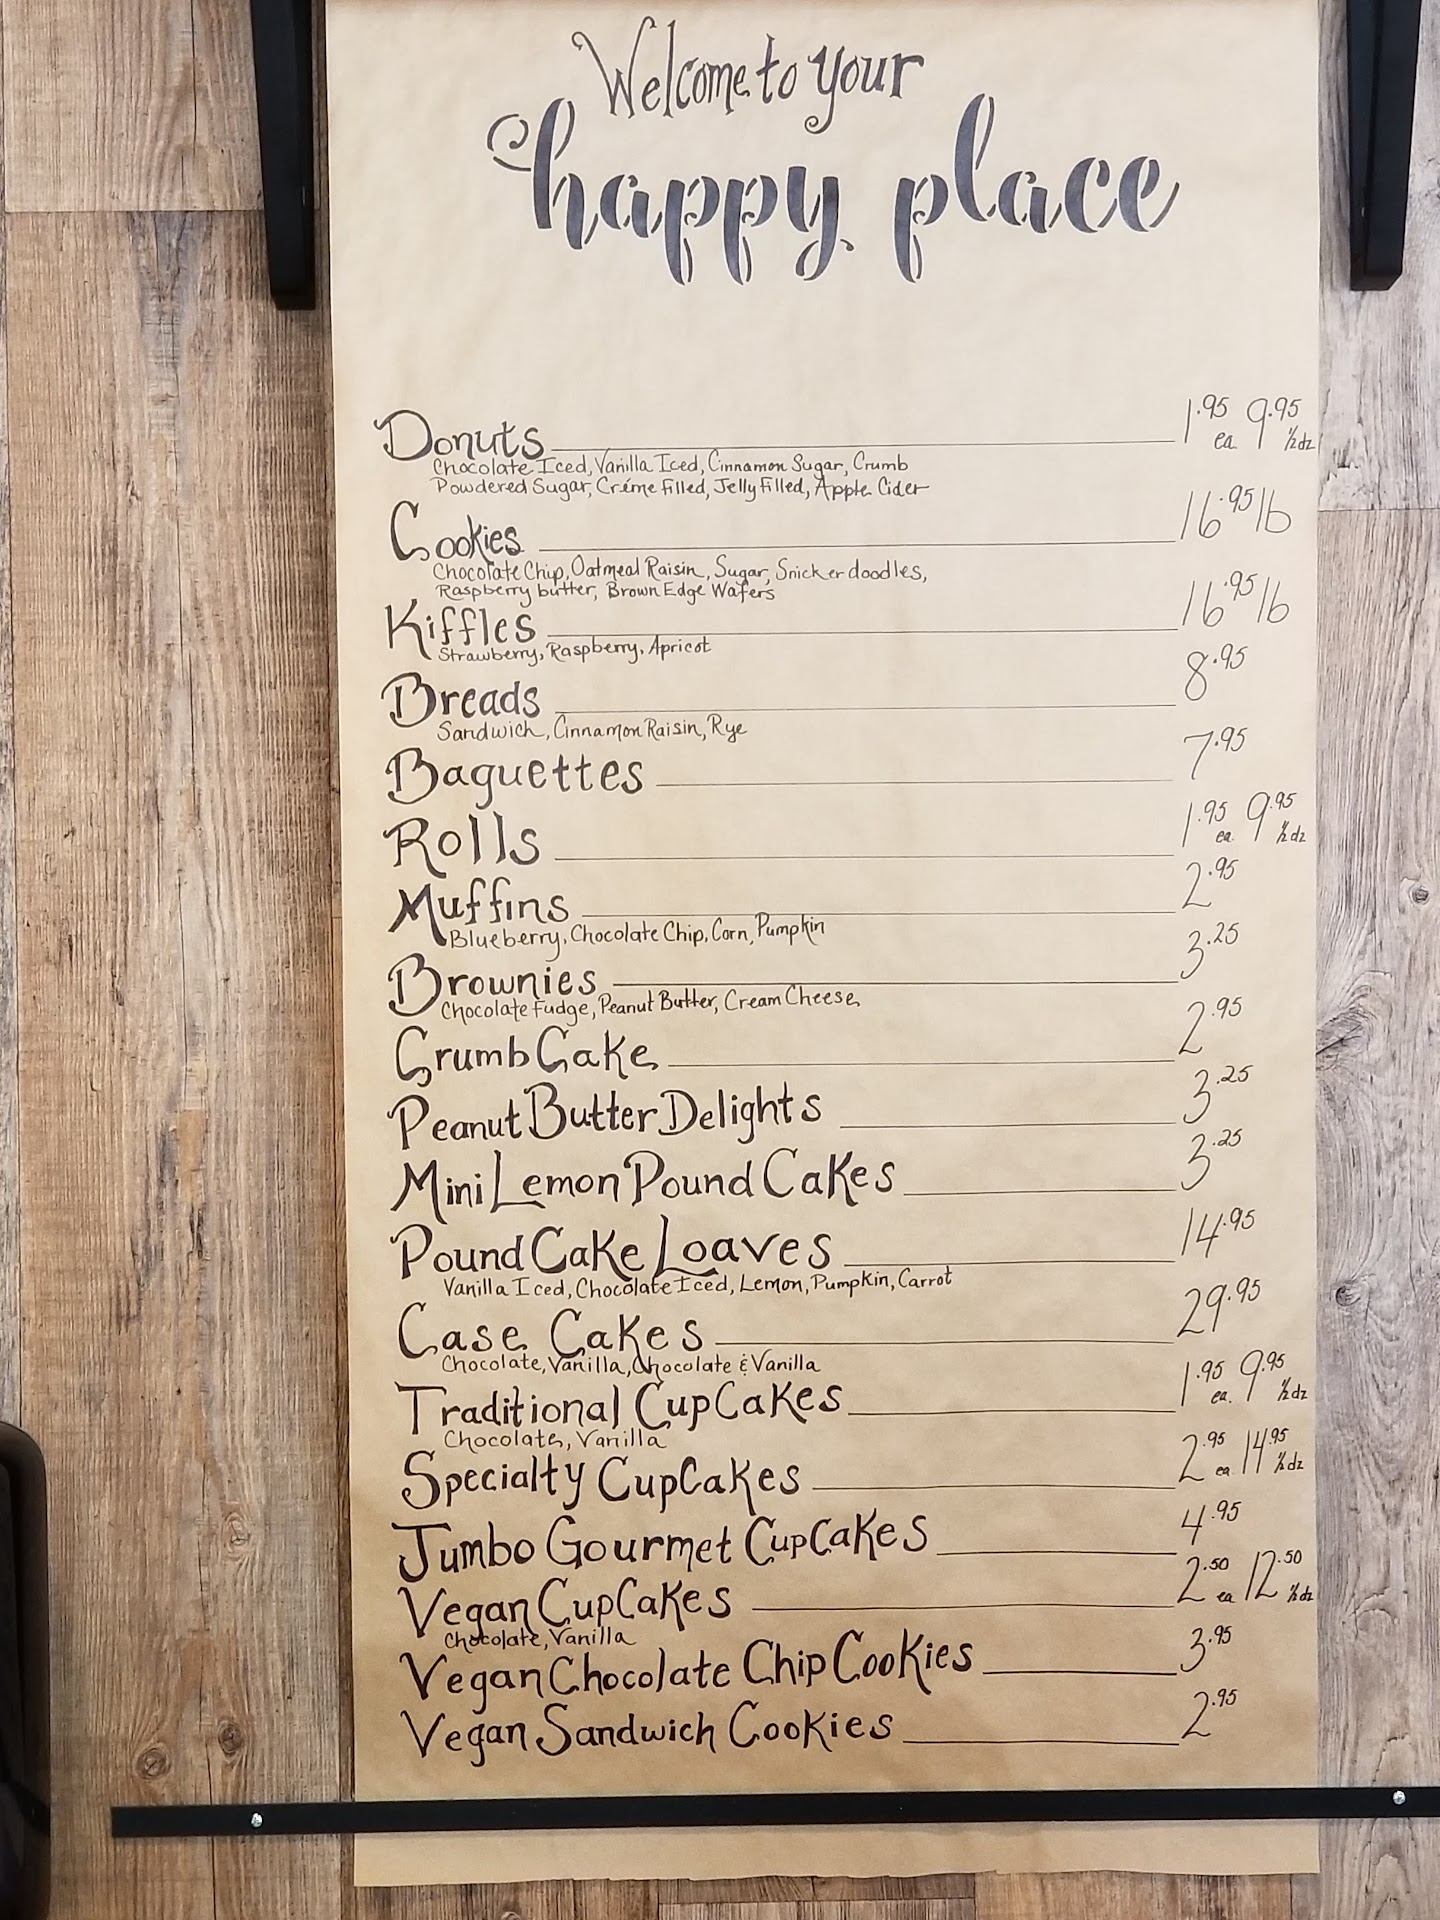 Welcome to your
happy place
Donuts 1.95 ea 9.95 1/2 dz
Chocolate Iced, Vanilla Iced, Cinnamon Sugar, Crumb
Powdered Sugar, Créme Filled, Jelly Filled, Apple Cider
Cookies 16.95 lb
Chocolate Chip, Oatmeal Raisin, Sugar, Snickerdoodles,
Raspberry butter, Brown Edge Wafers
Kiffles 16.95 lb
Strawberry, Raspberry, Apricot
Breads 8.95
Sandwich, Cinnamon Raisin, Rye
Baguettes 7.95
Rolls 1.95 ea. 9.95 1/2 dz
Muffins 2.95
Blueberry, Chocolate Chip, Corn, Pumpkin
Brownies 3.25
Chocolate Fudge, Peanut Butter, Cream Cheese
Crumb Cake 2.95
Peanut Butter Delights 3.25
Mini Lemon Pound Cakes 3.25
Pound Cake Loaves 14.95
Vanilla Iced, Chocolate Iced, Lemon, Pumpkin, Carrot
Case Cakes 29.95
Chocolate, Vanilla, Chocolate & Vanilla
Traditional CupCakes 1.95 ea. 9.95 1/2 dz
Chocolate, Vanilla
Specialty CupCakes 2.95 ea 14.95 1/2 dz
Jumbo Gourmet CupCakes 4.95
Vegan CupCakes 2.50 ea 12.50 1/2 dz
Chocolate, Vanilla
Vegan Chocolate Chip Cookies 3.95
Vegan Sandwich Cookies 2.95